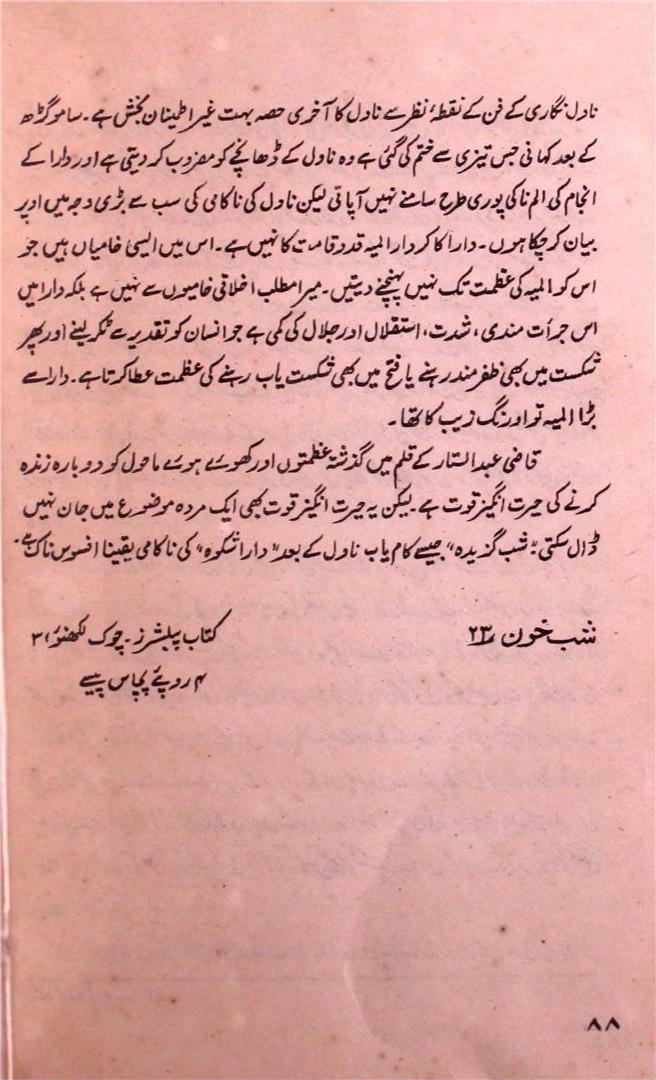 ناول نگاری کے فن کے نقطۂ نظر سے ناول کا آخری حصہ بہت غیر اطمینان بخش ہے۔ ساموگڑھ
کے بعد کہانی جس تیزی سے ختم کی گئی ہے وہ ناول کے ڈھانچے کو مضروب کر دیتی ہے اور دارا کے
انجام کی الم ناکی پوری طرح سامنے نہیں آپاتی لیکن ناول کی ناکامی کی سب سے بڑی وجہ میں اوپر
بیان کر چکا ہوں۔ دارا کا کردار المیہ قد و قامت کا نہیں ہے۔ اس میں ایسی خامیاں ہیں جو
اس کو المیہ کی عظمت تک نہیں پہنچنے دیتیں۔ میرا مطلب اخلاقی خامیوں سے نہیں ہے بلکہ دارا میں
اس جرأت مندی، شدت، استقلال اور جلال کی کمی ہے جو انسان کو تقدیر سے ٹکر لینے اور پھر
شکست میں بھی ظفر مند رہنے یا فتح میں بھی شکست یاب رہنے کی عظمت عطا کرتا ہے۔ دارا سے
بڑا المیہ تو اورنگ زیب کا تھا۔
قاضی عبدالستار کے قلم میں گذشتہ عظمتوں اور کھوئے ہوئے ماحول کو دوبارہ زندہ
کرنے کی حیرت انگیز قوت ہے۔ لیکن یہ حیرت انگیز قوت بھی ایک مردہ موضوع میں جان نہیں
ڈال سکتی۔ "شب گزیدہ" جیسے کام یاب ناول کے بعد "دارا شکوہ" کی ناکامی یقیناً افسوس ناک ہے۔
شب خون ۲۳
کتاب پبلشرز۔ چوک لکھنؤ ۳
۴ روپئے پچاس پیسے
۸۸